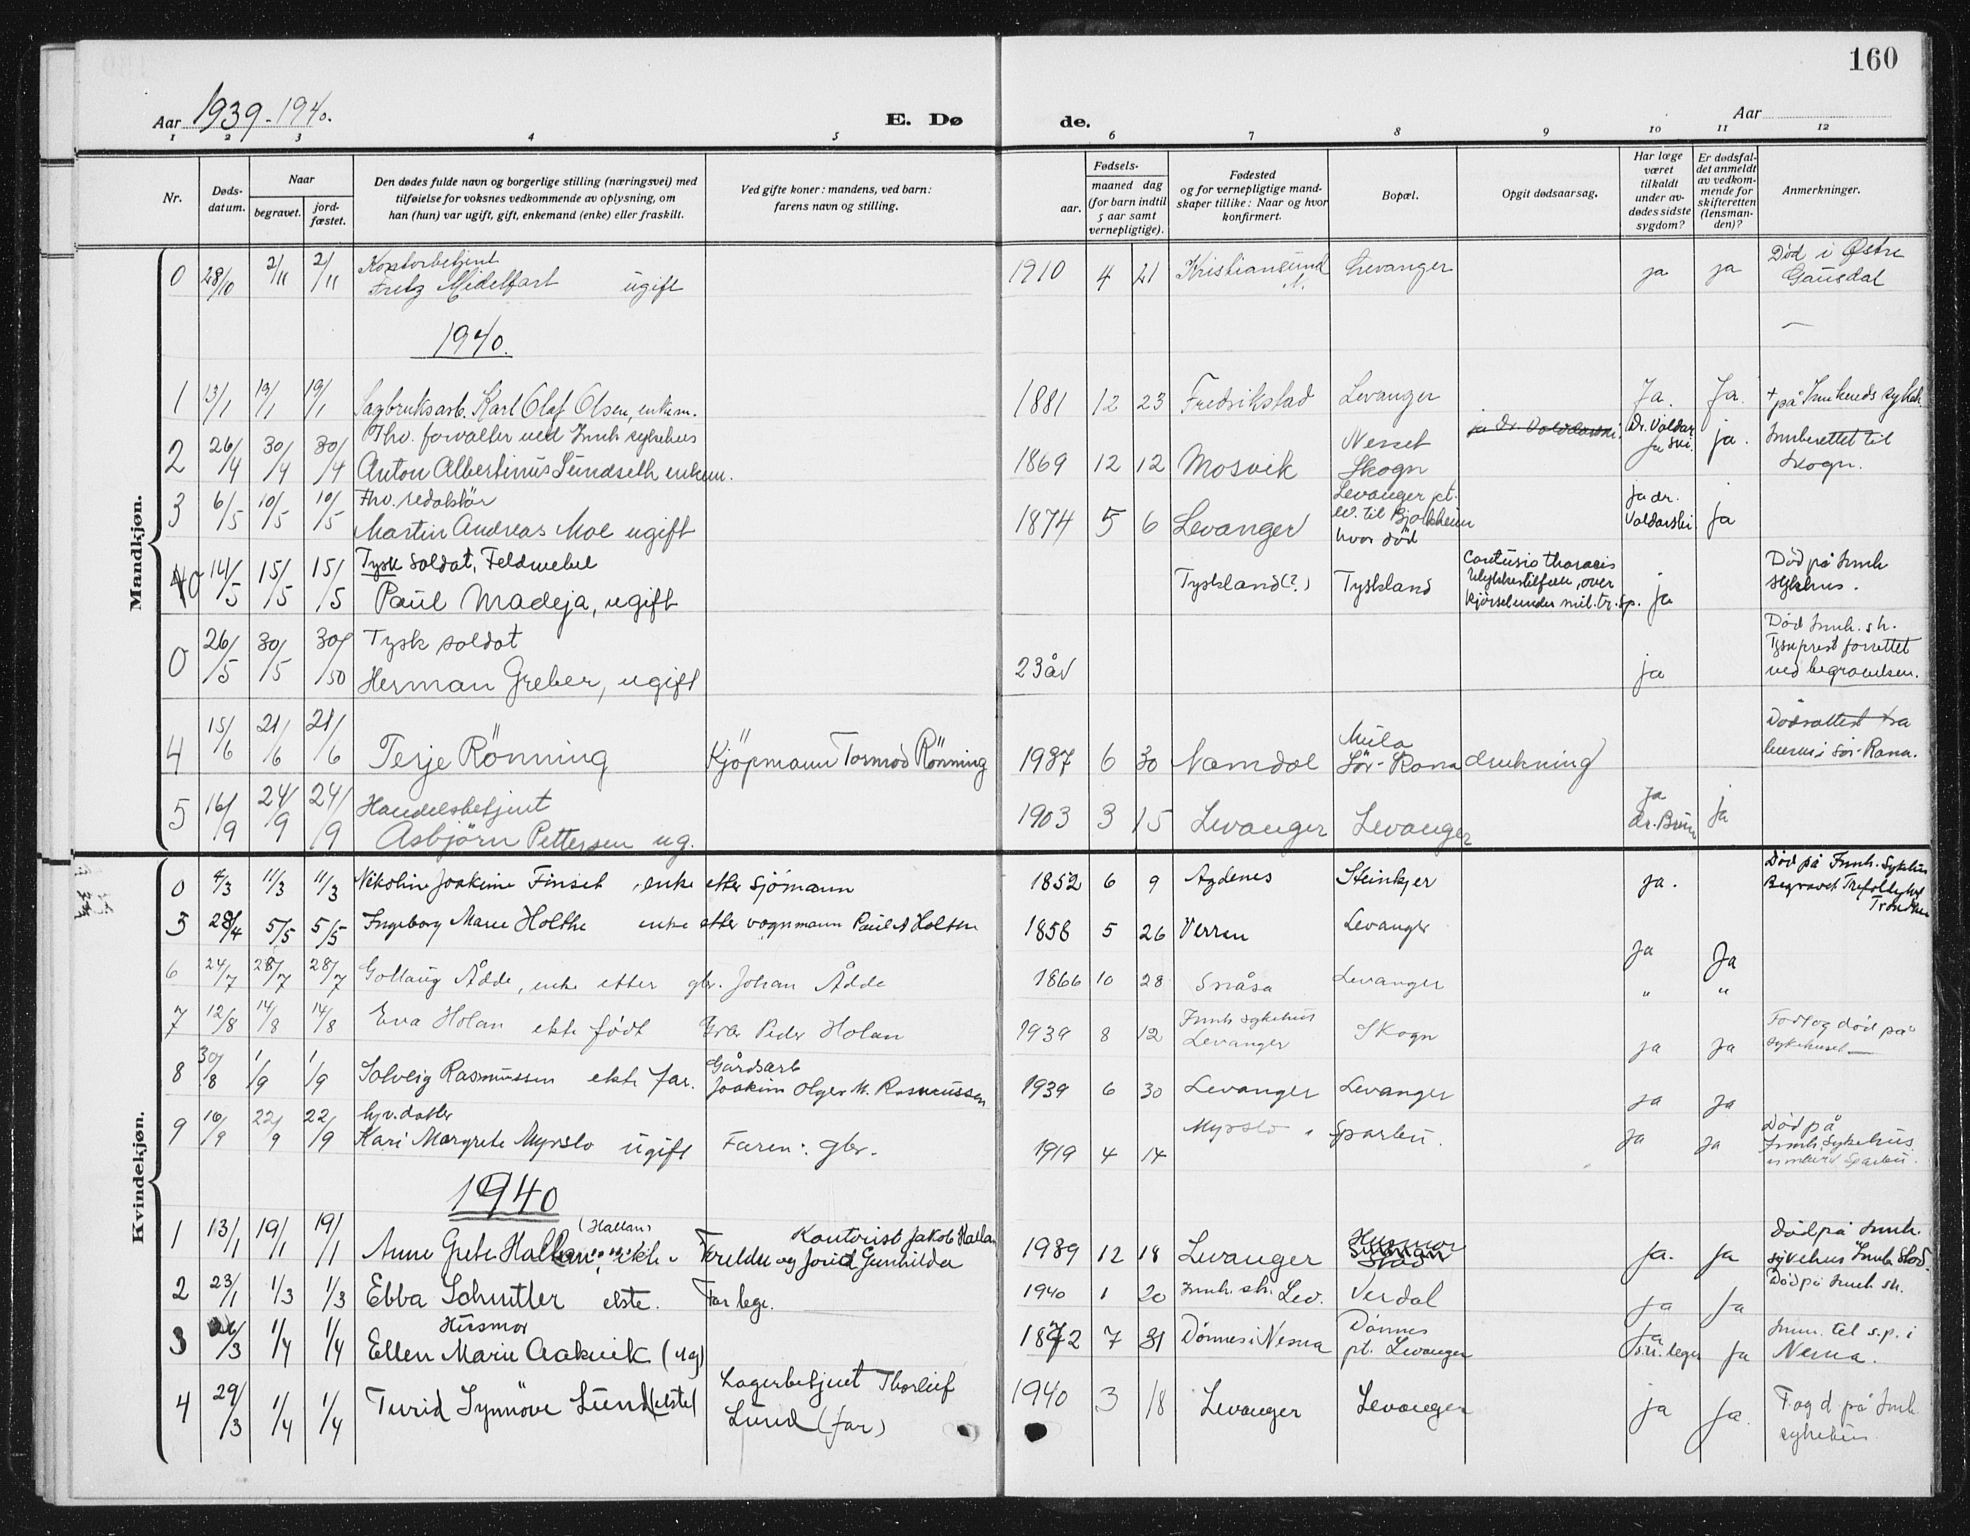 160
Aar 1939-1940.
E. Dø de.
Aar
1 2 3 4 5 6 7 8 9 10 11 12
Nr.
Døds-
datum.
Naar
begravet.
jord-
fæstet.
Den dødes fulde navn og borgerlige stilling (næringsvei) med
tilføielse for voksnes vedkommende av oplysning, om
han (hun) var ugift, gift, enkemand (enke) eller fraskilt.
Ved gifte koner: mandens, ved barn:
farens navn og stilling.
Fødsels-
aar.
maaned dag
(for barn indtil
5 aar samt
vernepligtige).
Fødested
og for vernepligtige mand-
skaper tillike: Naar og hvor
konfirmert.
Bopæl.
Opgit dødsaarsag.
Har læge
været
tilkaldt
under av-
dødes sidste
sygdom?
Er dødsfal-
det anmeldt
av vedkom-
mende for
skifteretten
(lensman-
den)?
Anmerkninger.
Mandkjøn.
0 28/10 2/11 2/11 Kontorbetjent
Fritz Midelfart ugift 1910 4 21 Kristiansund N. Levanger ja ja Død i Østre
Gausdal
1940.
1 13/1 19/1 19/1 Sagbruksarb. Karl Olaf Olsen, enkem. 1881 12 23 Fredrikstad Levanger Ja. Ja. + på Innherreds sykeh.
2 26/4 30/4 30/4 Fhv. forvalter ved Innh sykehus
Anton Albertinus Sundseth enkem. 1869 12 12 Mosvik Nesset
Skogn ja Dr. Voldarski Dr. Voldarski ja ja. Innberettet til
Skogn.
3 6/5 10/5 10/5 Fhv. redaktør
Martin Andreas Moe ugift 1874 5 6 Levanger Levanger pt.
hvor død ja dr.
Voldarski ja
40 14/5 15/5 15/5 Tysk soldat, Feldwebel
Paul Madeja, ugift Tyskland(?) Tyskland Contusio thoracis
Ulykkestilfelle, over
kjørsel under mil. tr.sp. ja Død på Innh
sykehus.
0 26/5 30/5 30/50 Tysk soldat
Herman Greber, ugift 23 år ja Død Innh. sh.
Tysk prest forrettet
ved begravelsen.
4 15/6 21/6 21/6 Terje Rönning Kjöpmann Tormod Rönning 1937 6 30 Namdal
Sör-Rana drukning Dødsattest fra
i Sör-Rana.
5 16/9 24/9 24/9 Handelsbetjent
Asbjörn Pettersen ug. 1903 3 15 Levanger Levanger ja
dr. Bruun ja
Kvindekjøn.
0 4/3 11/3 11/3 Nikoline Joakime Finset, enke etter sjömann 1852 6 9 Agdenes Steinkjer ja. Død på Innh. Sykehus
Begravet
5 28/4 5/5 5/5 Ingeborg Marie Holthe enke etter vognmann Paul A Holthe 1858 5 26 Verran Levanger ja Ja
6 24/7 28/7 28/7 Gollaug Ådde, enke etter gbr. Johan Ådde 1866 10 28 Snåsa Levanger " "
7 12/8 14/8 14/8 Eva Holan ekte født Gbr Peder Holan 1939 8 12 Innh sykehus
Levanger Skogn ja ja Født og død på
sykehuset
8 30/8 1/9 1/9 Solveig Rasmussen ekte far. Gårdsarb
Joakim Olger M. Rasmussen 1939 6 30 Levanger Levanger ja ja
9 16/9 22/9 22/9 hjv. datter
Kari Margrete Myrslo ugift Faren: gbr. 1919 4 14 Myrslo, Sparbu. ja ja Død på
Innh Sykehus
Sparbu.
1940
1 13/1 19/1 19/1 (Hallan)
Anne Grete Hallan, ekte. Foreldre og Jorid Gunhilda
Kontorist Jakob Hallan 1939 12 18 Levanger ja. ja Død på Innh.
sykehus Innb. Stod.
2 23/1 1/3 1/3 Ebba Schnitler ekte. Far lege. 1940 1 20 Innh. sh. Lev. Verdal ja ja Död på Innh sh.
3 26/3 1/4 1/4 Husmor
Ellen Marie Aakvik (ug) 1872 7 31 Dönnes i Nesna Dönnes
pt. Levanger ja
s.u. leger ja Innm. til s.p. i
Nesna.
4 29/3 1/4 1/4 Turid Synnöve Lund (ekte) Lagerbetjent Thorleif
Lund (far) 1940 3 18 Levanger Levanger ja ja. F. og d. på Innh
sykehus